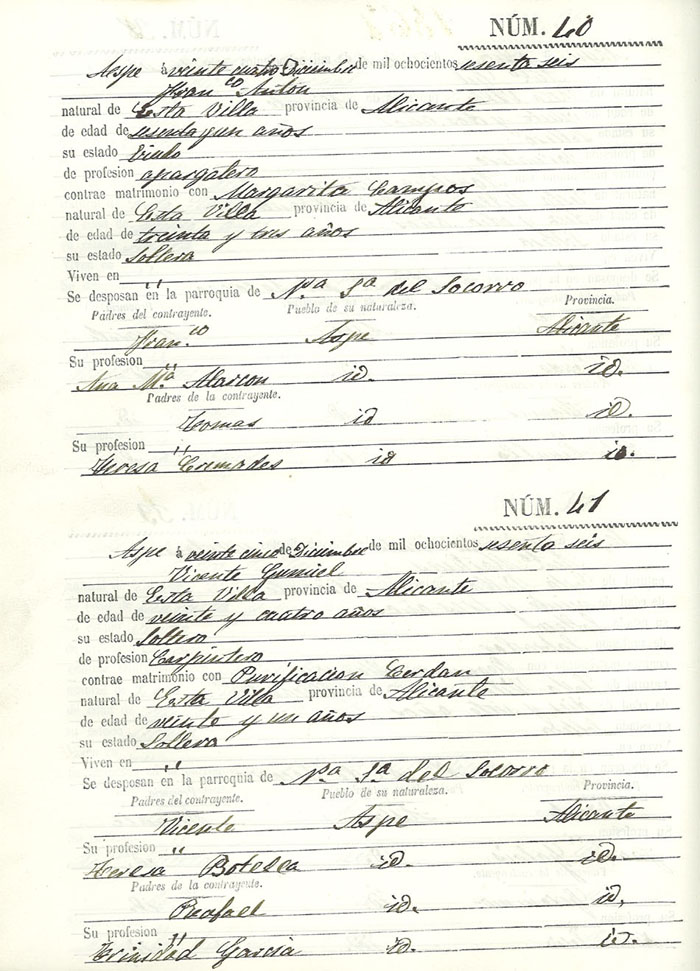 NÚM. 40
Aspe á veinte cuatro Diciembre de mil ochocientos sesenta seis
Fran.co Anton
natural de Esta Villa provincia de Alicante
de edad de sesenta y un años
su estado Viudo
de profesion apargatero
contrae matrimonio con Margarita Campos
natural de Esta Villa provincia de Alicante
de edad de treinta y tres años
su estado Soltera
Viven en "
Se desposan en la parroquia de Nª Sª del Socorro
Padres del contrayente. Pueblo de su naturaleza. Provincia.
Fran.co Aspe Alicante
Su profesion "
Ana Mª Alarcon id. id.
Padres de la contrayente.
Tomas id id.
Su profesion "
Teresa Cremades id id.
NÚM. 41
Aspe á veinte cinco de Diciembre de mil ochocientos sesenta seis
Vicente Gumiel
natural de Esta Villa provincia de Alicante
de edad de veinte y cuatro años
su estado Soltero
de profesion Carpintero
contrae matrimonio con Purificacion Cerdan
natural de Esta Villa provincia de Alicante
de edad de veinte y un años
su estado Soltera
Viven en "
Se desposan en la parroquia de Nª Sª del Socorro
Padres del contrayente. Pueblo de su naturaleza. Provincia.
Vicente Aspe Alicante
Su profesion "
Teresa Botella id. id.
Padres de la contrayente.
Rafael id. id.
Su profesion "
Trinidad Garcia id. id.